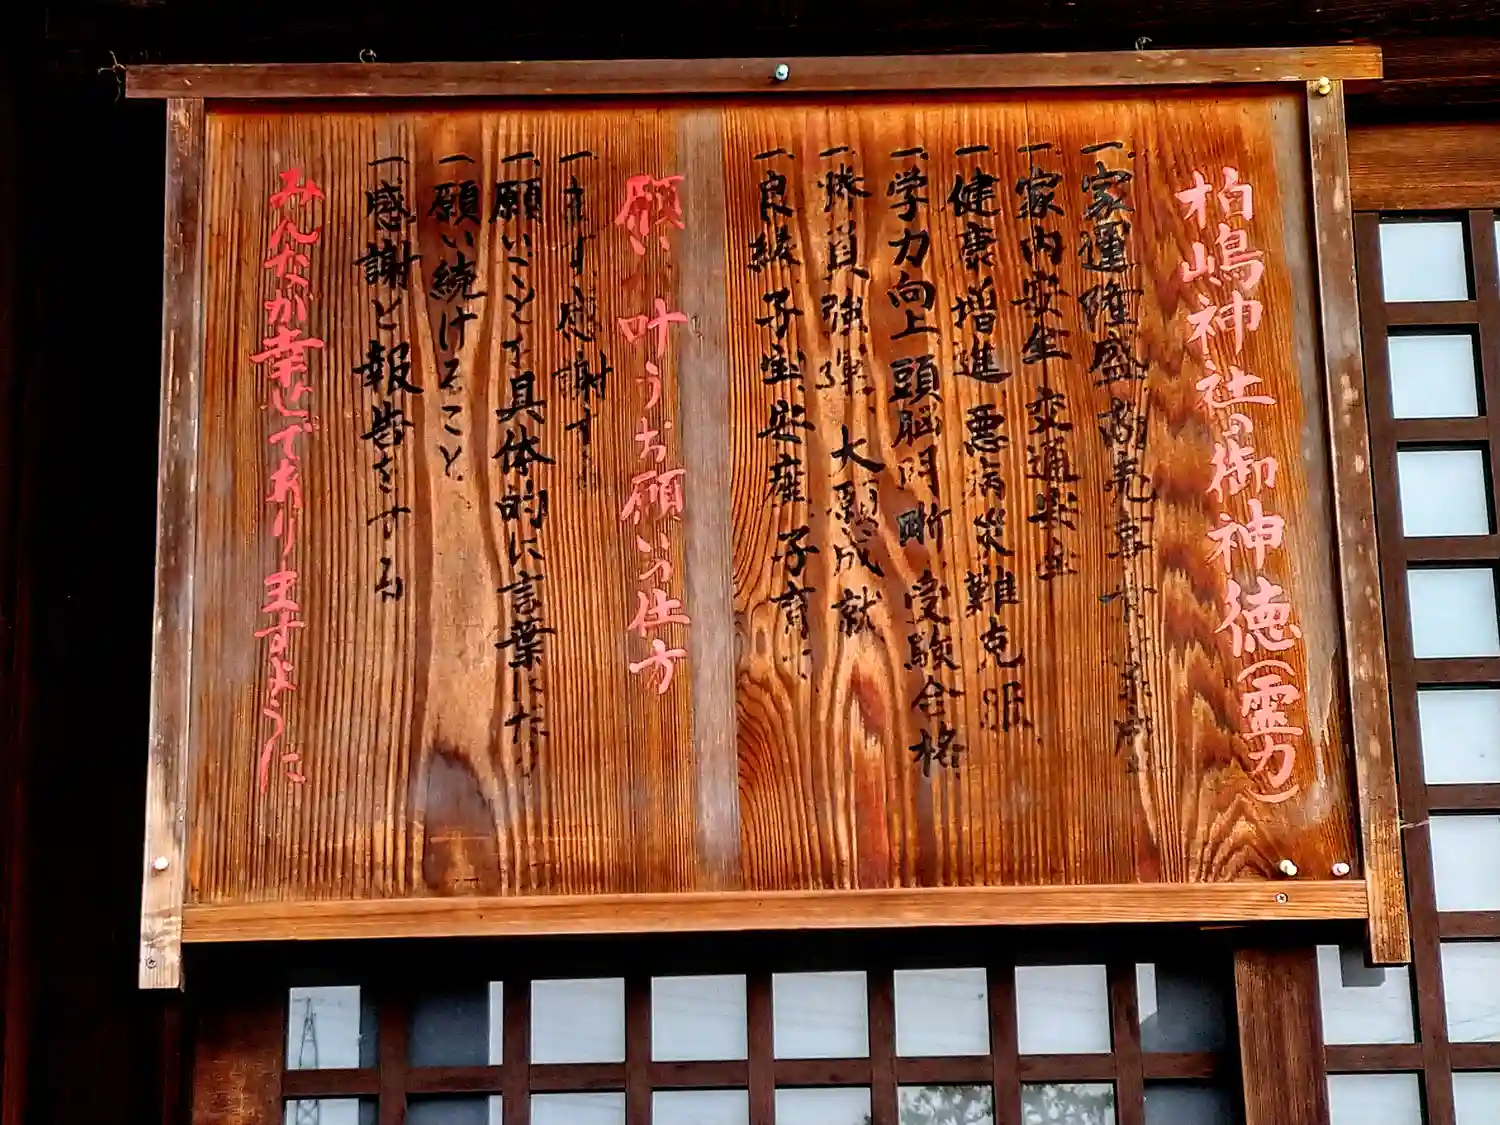 柏嶋神社の御神徳(霊力)
一、家運隆盛 商売繁
一、家内安全 交通安全
一、健康増進 悪病災難克服
一、学力向上 頭脳明晰 受験合格
一、勝負強運、大願成就
一、良縁 子宝 安産 子育
願い叶うお願い仕方
一、まず感謝す
一、願いごとを具体的に言葉にだ
一、願い続けること
一、感謝と報告をする
みんなが幸せでありますように